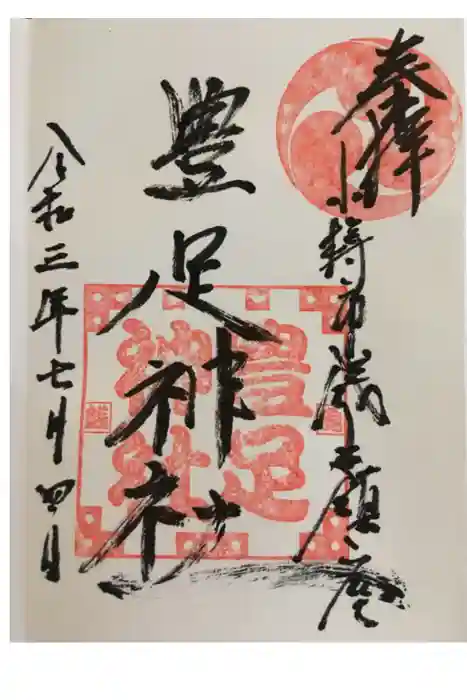 奉拝
小樽市
豊足神社
豊足
神社
令和三年七月四日